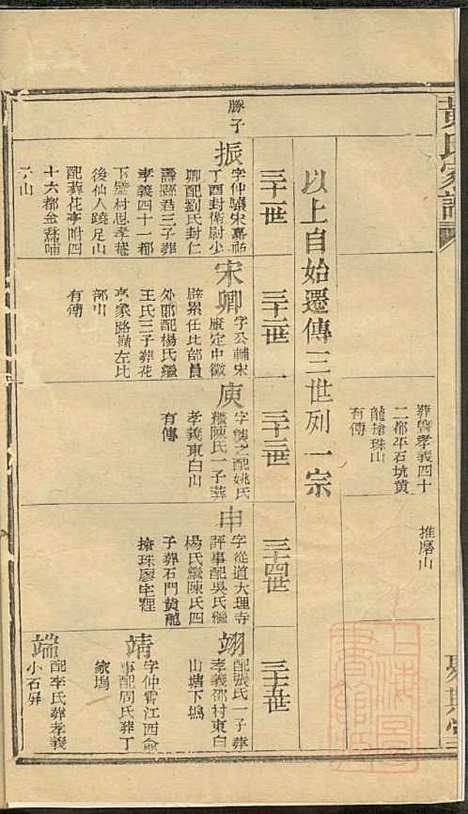 黃氏家譜
葬暨孝義四十
二都平石坑黃
龍搶珠山
有傳
推磨山
以上自始遷傳三世列一宗
三十一世
三十二世
三十三世
三十四世
三十五世
勝子
振
字仲驤宋嘉祐
丁酉封衛尉少
卿配劉氏封仁
壽縣君三子葬
孝義四十一都
下壁村思孝菴
後仙人蹺足山
配葬花亭附四
十六都金喬
子山
宋卿
字公輔宋
康定中徵
辟累任比部員
外郎配楊氏繼
王氏三子葬花
亭象路嶺左比
部山
有傳
庚
字 之配姚氏
繼陳氏一子葬
孝義東白山
有傳
申
字從道大理寺
評事配吳氏繼
楊氏繼陳氏四
子葬石門黃龍
搶珠廖宅裡
翊
配張氏一子葬
孝義邵村東白
山塘下塢
靖
字仲霄江西僉
事配周氏葬丁
家塢
端
配李氏葬孝義
小石驛